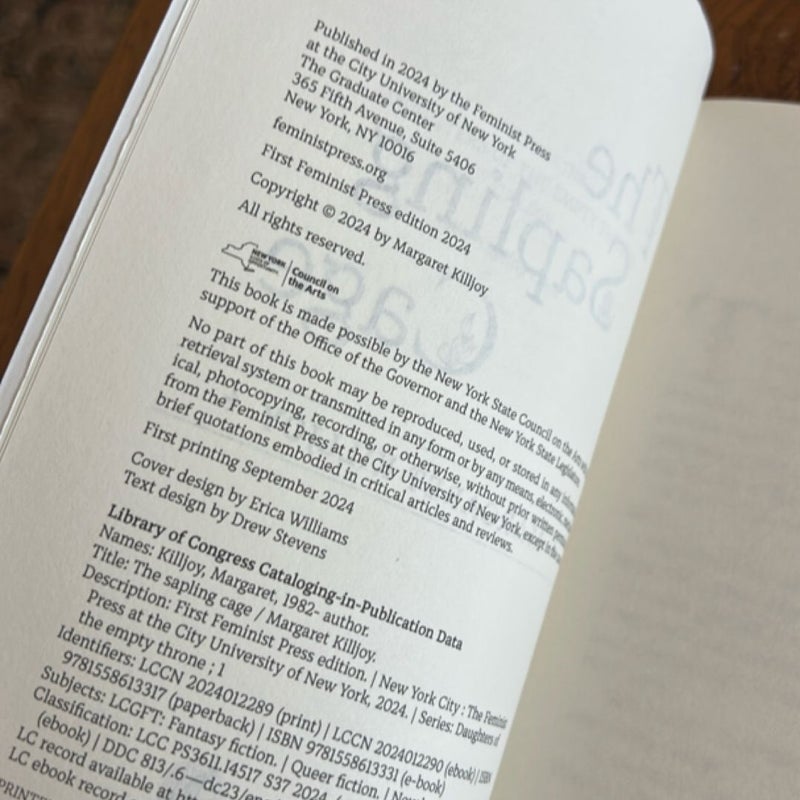 Published in 2024 by the Feminist Press
at the City University of New York
The Graduate Center
365 Fifth Avenue, Suite 5406
New York, NY 10016
feministpress.org
First Feminist Press edition 2024
Copyright © 2024 by Margaret Killjoy
All rights reserved.
NEW YORK
Council on
the Arts
This book is made possible by the New York State Council on the Arts
support of the Office of the Governor and the New York State Legislature.
No part of this book may be reproduced, used, or stored in any
retrieval system or transmitted in any form or by any means, electronic,
ical, photocopying, recording, or otherwise, without prior written
from the Feminist Press at the City University of New York, except in the
brief quotations embodied in critical articles and reviews.
First printing September 2024
Cover design by Erica Williams
Text design by Drew Stevens
Library of Congress Cataloging-in-Publication Data
Names: Killjoy, Margaret, 1982- author.
Title: The sapling cage / Margaret Killjoy.
Description: First Feminist Press edition. | New York City : The Feminist
Press at the City University of New York, 2024. | Series: Daughters of
the empty throne ; 1
Identifiers: LCCN 2024012289 (print) | LCCN 2024012290 (ebook) | ISBN
9781558613317 (paperback) | ISBN 9781558613331 (e-book)
Subjects: LCGFT: Fantasy fiction. | Queer fiction. |
Classification: LCC PS3611.I4517 S37 2024
(ebook) | DDC 813/.6—dc23/
LC record available at
LC ebook record
The
Sapling
Cage